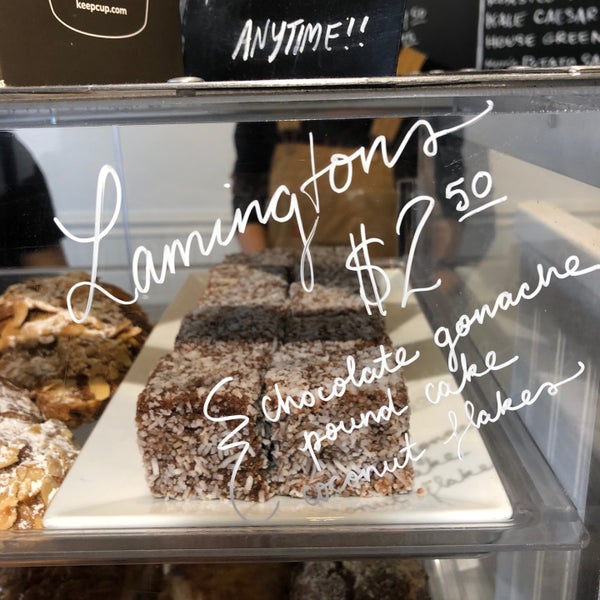 keepcup.com
ANYTIME!!
KALE CAESAR
HOUSE GREEN
Lamingtons
$2.50
chocolate gonache
pound cake
coconut flakes